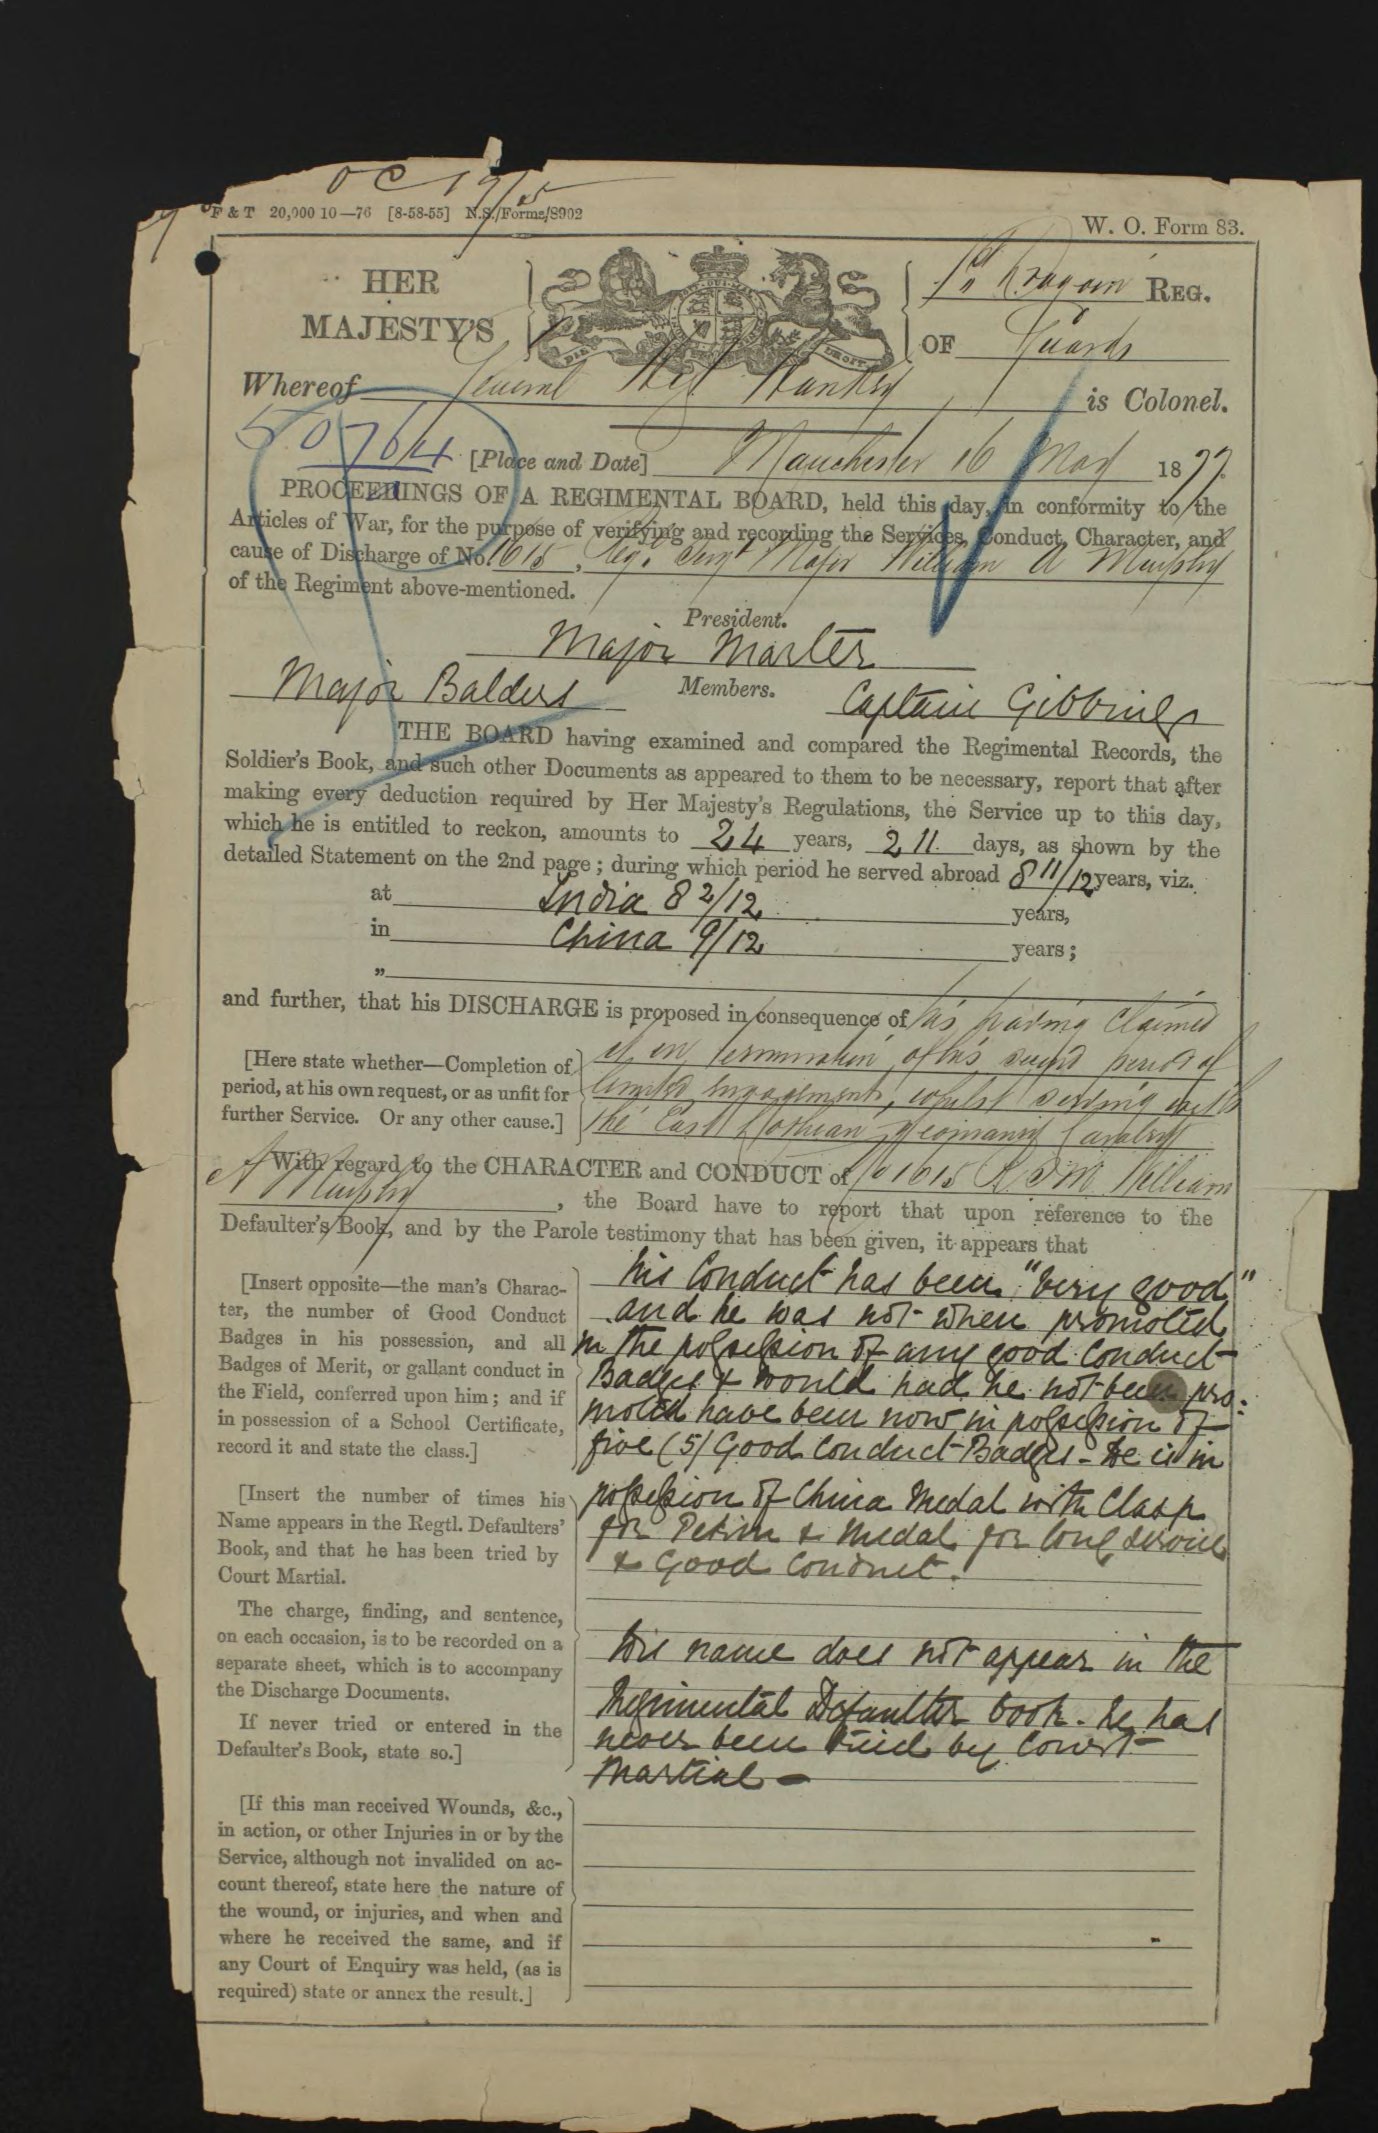 OC 19/5
F & T 20,000 10—76 [8-58-55] N.S./Forms/8902
W. O. Form 83.
HER
MAJESTY'S
1st Dragoon REG.
OF Guards
Whereof General Hankey is Colonel.
50764
[Place and Date] Manchester 16 May 1877.
PROCEEDINGS OF A REGIMENTAL BOARD, held this day, in conformity to the
Articles of War, for the purpose of verifying and recording the Services, Conduct, Character, and
cause of Discharge of No. 1615, Regl. Sergt Major William A Murphy
of the Regiment above-mentioned.
President.
Major Marter
Members.
Major Balders Captain Gibbings
THE BOARD having examined and compared the Regimental Records, the
Soldier's Book, and such other Documents as appeared to them to be necessary, report that after
making every deduction required by Her Majesty's Regulations, the Service up to this day,
which he is entitled to reckon, amounts to 24 years, 211 days, as shown by the
detailed Statement on the 2nd page; during which period he served abroad 8 11/12 years, viz.
at India 8 2/12 years,
in China 9/12 years;
„
and further, that his DISCHARGE is proposed in consequence of his having claimed
it on termination of his second period of
limited engagement, whilst serving with
the East Lothian Yeomanry Cavalry
[Here state whether—Completion of
period, at his own request, or as unfit for
further Service. Or any other cause.]
With regard to the CHARACTER and CONDUCT of No 1615 R.S.M. William
A Murphy, the Board have to report that upon reference to the
Defaulter's Book, and by the Parole testimony that has been given, it appears that
[Insert opposite—the man's Charac-
ter, the number of Good Conduct
Badges in his possession, and all
Badges of Merit, or gallant conduct in
the Field, conferred upon him; and if
in possession of a School Certificate,
record it and state the class.]
his Conduct has been "Very good"
and he was not when promoted
in the possession of any good Conduct
Badges & would had he not been pro:
moted have been now in possession of
five (5) Good Conduct Badges - He is in
possession of China Medal with Clasp
for Pekin & Medal for long service
& Good Conduct.
[Insert the number of times his
Name appears in the Regtl. Defaulters'
Book, and that he has been tried by
Court Martial.
The charge, finding, and sentence,
on each occasion, is to be recorded on a
separate sheet, which is to accompany
the Discharge Documents.
If never tried or entered in the
Defaulter's Book, state so.]
His name does not appear in the
Regimental Defaulter book. he has
never been tried by Court
Martial -
[If this man received Wounds, &c.,
in action, or other Injuries in or by the
Service, although not invalided on ac-
count thereof, state here the nature of
the wound, or injuries, and when and
where he received the same, and if
any Court of Enquiry was held, (as is
required) state or annex the result.]